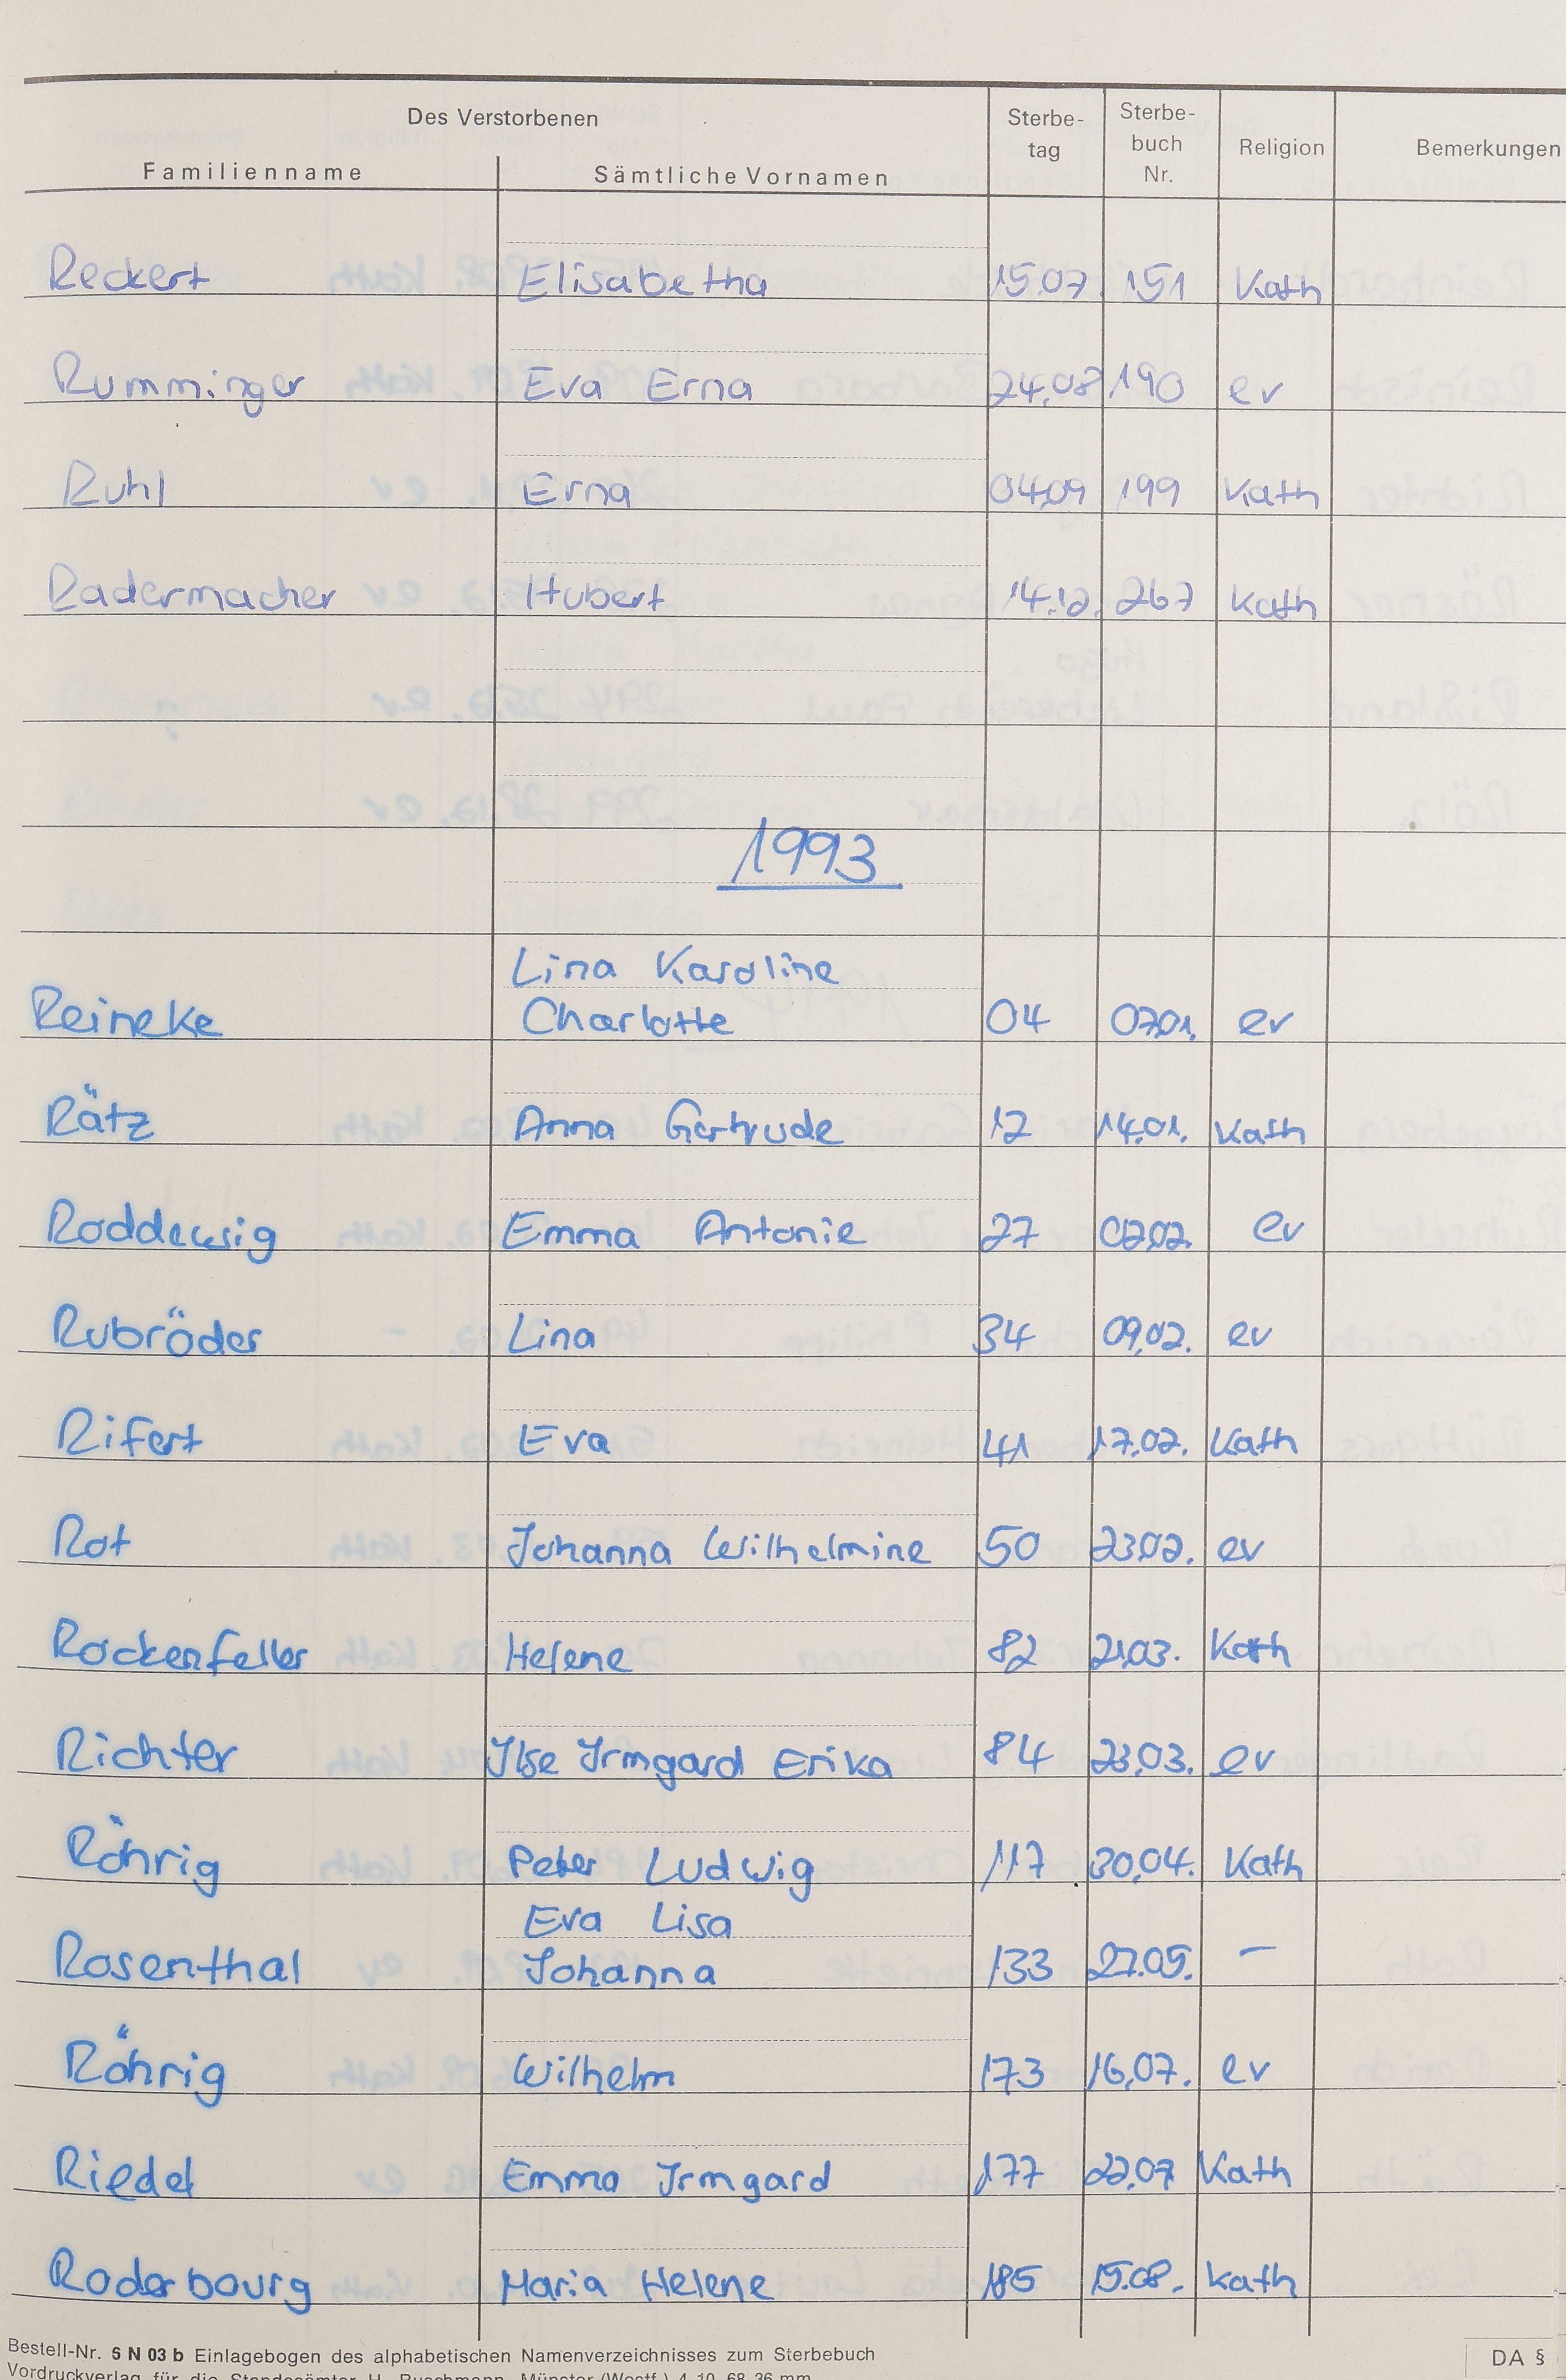 Des Verstorbenen
Familienname Sämtliche Vornamen Sterbe-tag Sterbe-buch Nr. Religion Bemerkungen
Reckert Elisabetha 15.07. 151 Kath
Rumminger Eva Erna 24.08 190 ev
Ruhl Erna 04.09 199 Kath
Radermacher Hubert 14.12. 267 Kath
1993
Lina Karoline
Reineke Charlotte 04 07.01. ev
Rätz Anna Gertrude 12 14.01. Kath
Roddewig Emma Antonie 27 02.02. ev
Rubröder Lina 34 09.02. ev
Rifert Eva 41 17.02. Kath
Rot Johanna Wilhelmine 50 23.02. ev
Rockenfeller Helene 82 21.03. Kath
Richter Ilse Irmgard Erika 84 23.03. ev
Röhrig Peter Ludwig 117 30.04. Kath
Eva Lisa
Rosenthal Johanna 133 27.05. –
Röhrig Wilhelm 173 16.07. ev
Riedel Emma Irmgard 177 22.07 Kath
Roderbourg Maria Helene 185 15.08. Kath
Bestell-Nr. 5 N 03 b Einlagebogen des alphabetischen Namenverzeichnisses zum Sterbebuch
DA §
Vordruckverlag für die Standesämter H. Buschmann, Münster (Westf.) 4. 10. 68. 36 mm